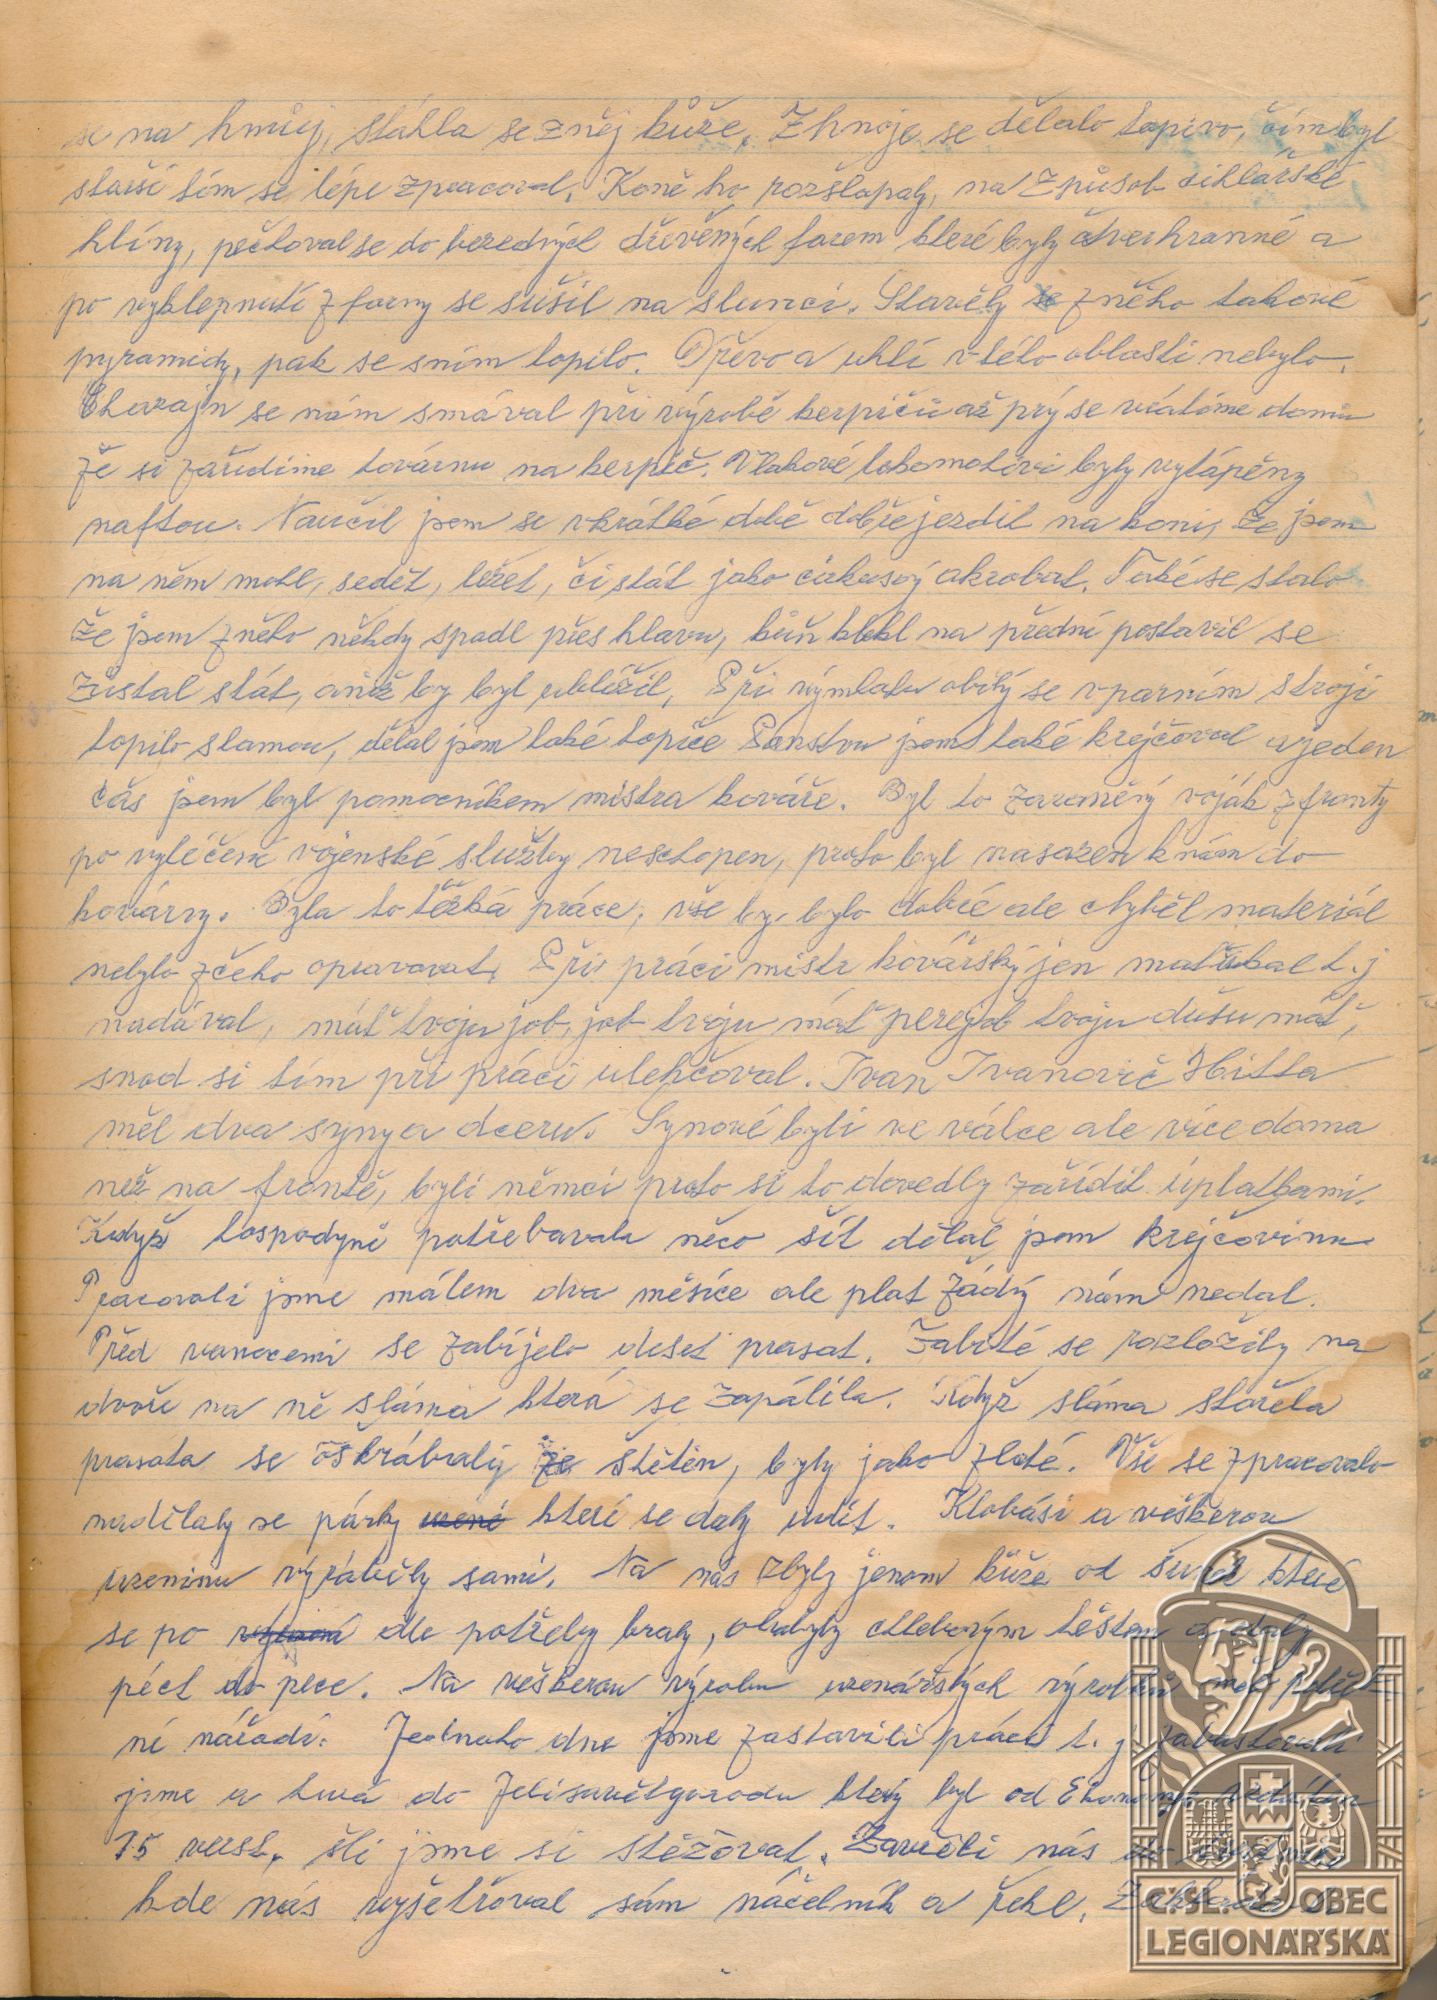 se na hnůj, stáhla se zněj kůže. Z hnoje se dělalo topivo, čím byl
starší tím se lépe zpracoval. Koně ho rozšlapaly, na způsob cihlářské
hlíny, pěchoval se do bezedných dřevěných forem které byly čtverhranné a
po vyklepnutí z formy se sušil na slunci. Stavěly se z něho takové
pyramidy, pak se sním topilo. Dřevo a uhlí v této oblasti nebylo.
Chazajn se nám smával při výrobě kerpičů až prý se vrátíme domu
že si zařídíme továrnu na kerpič. Vlakové lokomotivi byly vytápěny
naftou. Naučil jsem se vkrátké době dobře jezdit na koni, že jsem
na něm mohl, sedět, ležet, či stát jako cirkusový akrobat. Také se stalo
že jsem z něho někdy spadl přes hlavu, kůň klekl na přední postavil se
zůstal stát, aniž by byl ublížil, Při výmlatu obilý se v parním stroji
topilo slamou, dělal jsem také topiče Panstvu jsem také krejčoval a jeden
čas jsem byl pomocníkem mistra kováře. Byl to zraněný voják z fronty
po vyléčení vojenské služby neschopen, proto byl nasazen k nám do
kovárny. Byla to těžká práce, vše by bylo dobré ale chyběl materiál
nebylo z čeho opravovat. Při práci mistr kovářský jen matubal t.j
nadával, máť tvoju job, job tvoju máť perejob tvoju dušu máť,
snad si tím při práci ulehčoval. Ivan Ivanovič Hitta
měl dva syny a dceru. Synové byli ve válce ale více doma
než na frontě, byli němci proto si to dovedly zařídit úplatkami.
Když hospodyně potřebovala něco šít dělal jsem krejčovinu
Pracovali jsme málem dva měsíce ale plat žádný nám nedal.
Před vanocemi se zabíjelo deset prasat. Zabité se rozložily na
dvoře na ně sláma která se zapálila. Když sláma shořela
prasata se oškrábaly ze štětin, byly jako zlaté. Vše se zpracovalo
nadělaly se párky uzené které se daly udit. Klobási a veškerou
uzeninu vyráběly sami. Na nás zbyly jenom kůže od šunek které
se po dle potřeby braly, obalyly chlebovým těstem a daly
péct do pece. Na veškerou výrobu uzenářských výrobků měl potřeb
né nářadí. Jednoho dne jsme zastavili práci t. j zabastovali
jsme a hurá do Jelisavětgorodu který byl od
15 verst, šli jsme si stěžovat. Zavřeli nás do
kde nás vyšetřoval sám náčelník a řekl.
ČSL. OBEC
LEGIONÁŘSKÁ